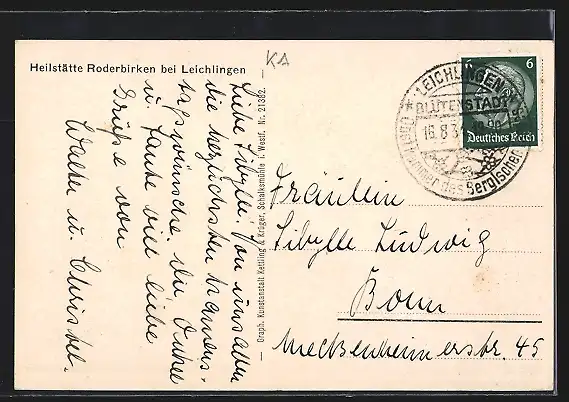 Heilstätte Roderbirken bei Leichlingen
KA
Liebe Sibylle! Von uns allen
die herzlichsten Namens-
tagswünsche. Die Onkel
u. Tante viele liebe
Grüße von
Walter u. Christel.
Graph. Kunstanstalt Kettling & Krüger, Schalksmühle i. Westf. Nr. 21382.
LEICHLINGEN
BLÜTENSTADT
16.8.3
des Bergischen
6 6
Deutsches Reich
Fräulein
Sibylle Ludwig
Bonn
Meckenheimerstr. 45